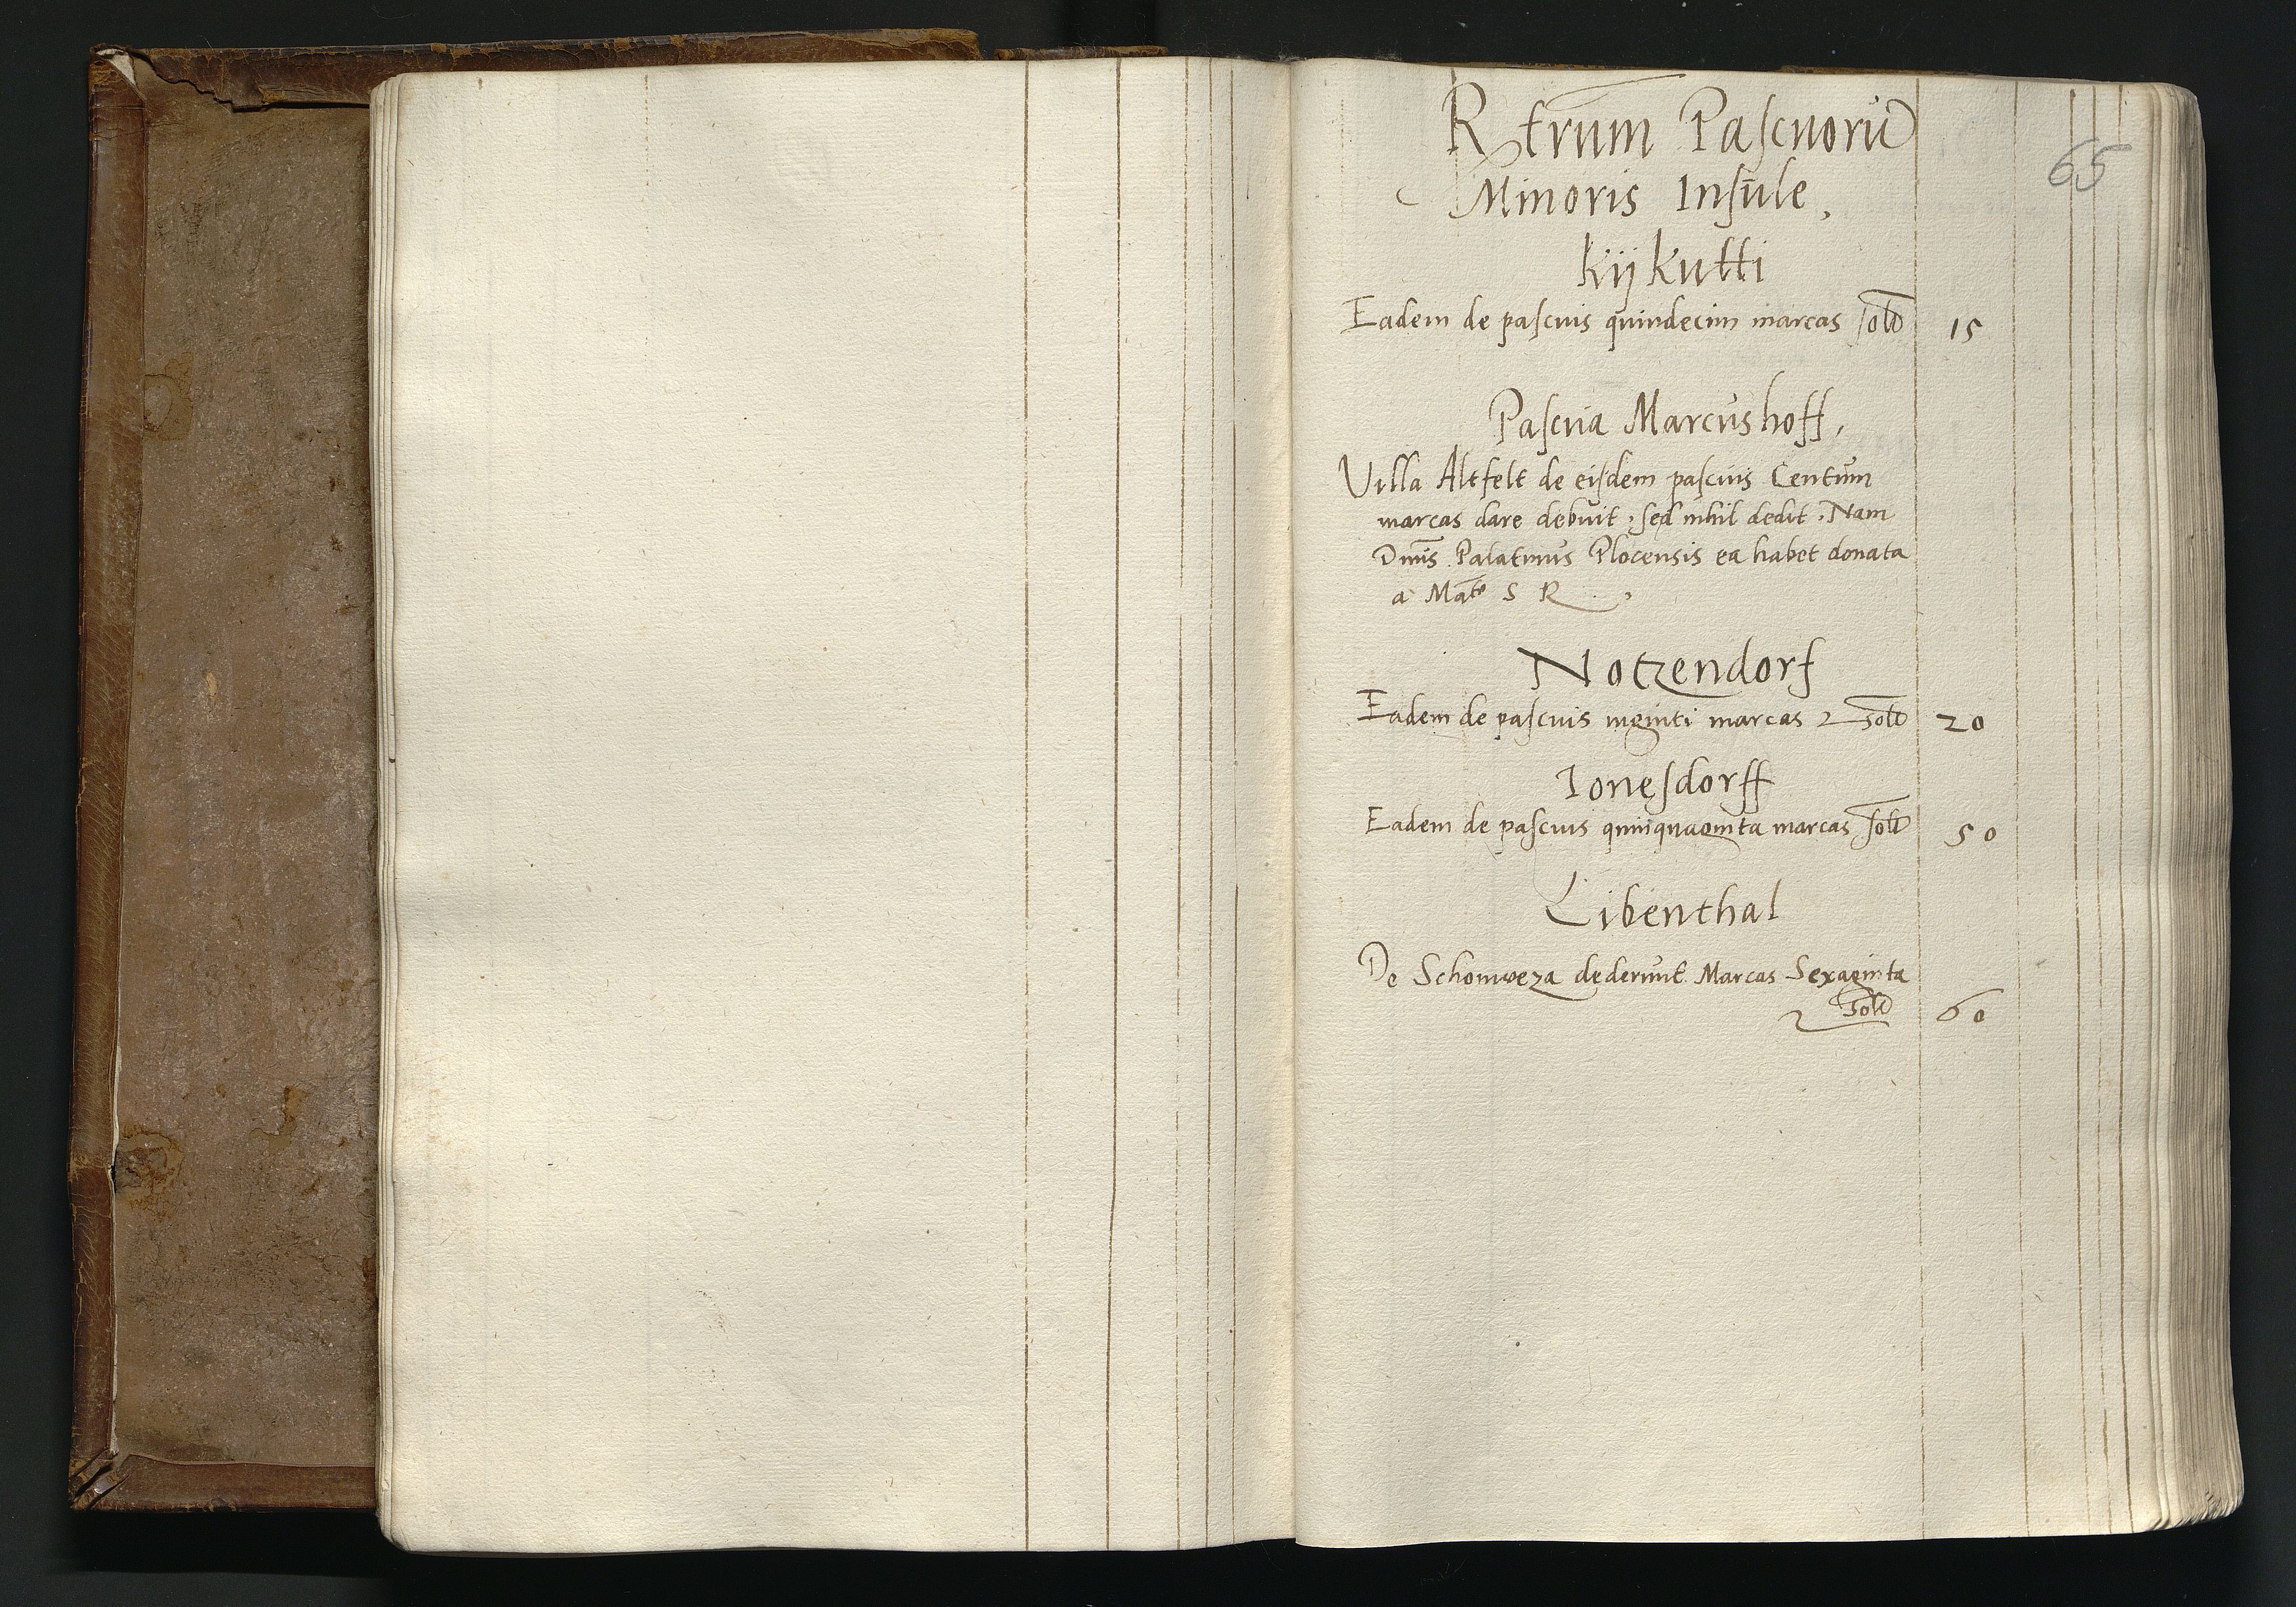 Rtrum Pascuorū
Minoris Insule,
65
Kÿkutti
Eadem de pascuis quindecim marcas sol 15
Pascua Marcushoff,
Villa Altfelt de eisdem pascuis Centum
marcas dare debuit, sed nihil dedit, Nam
Dnūs Palatinus Plocensis ea habet donata
a Mate S R
Notzendorf
Eadem de pascuis viginti marcas sol 20
Ionesdorff
Eadem de pascuis quinquaginta marcas sol 50
Libenthal
De Schonweza dederunt Marcas Sexaginta
sol 60